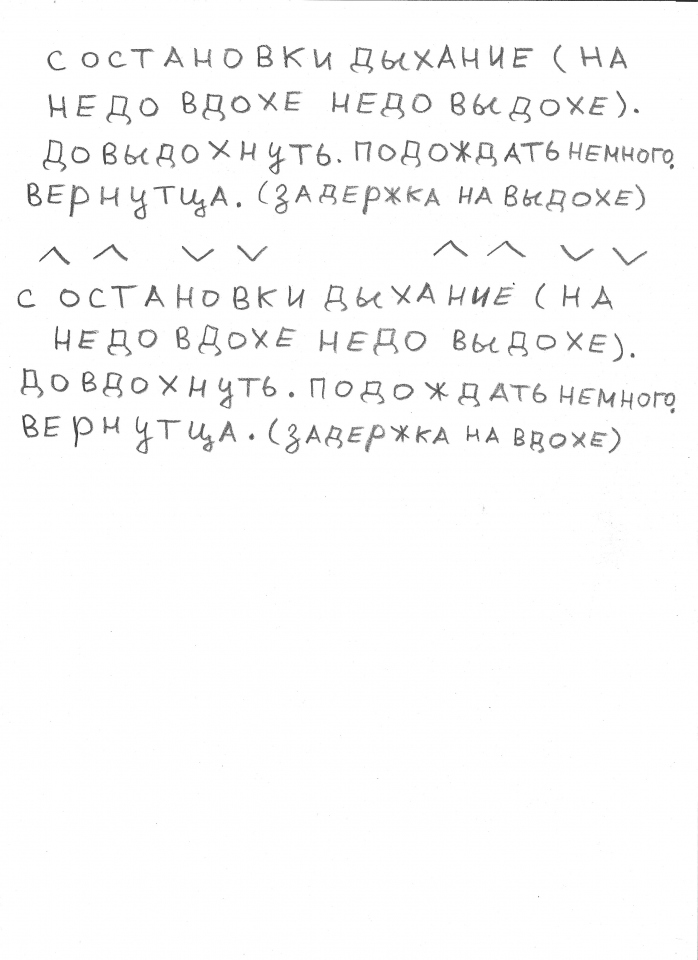 С ОСТАНОВКИ ДЫХАНИЕ (НА
НЕДО ВДОХЕ НЕДО ВЫДОХЕ).
ДОВЫДОХНУТЬ. ПОДОЖДАТЬ НЕМНОГО.
ВЕРНУТЦА. (ЗАДЕРЖКА НА ВЫДОХЕ)
С ОСТАНОВКИ ДЫХАНИЕ (НА
НЕДО ВДОХЕ НЕДО ВЫДОХЕ).
ДОВДОХНУТЬ. ПОДОЖДАТЬ НЕМНОГО.
ВЕРНУТЦА. (ЗАДЕРЖКА НА ВДОХЕ)